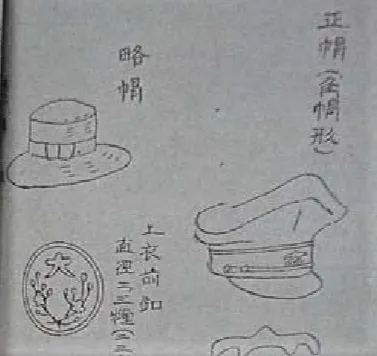 正帽(角帽形)
略帽
上衣前釦
直徑二、三糎(二